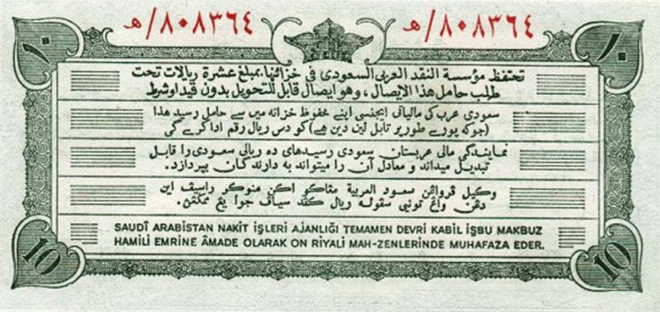 ه/٨٠٨٣٦٤ ه/٨٠٨٣٦٤
١٠ ١٠
تحتفظ مؤسسة النقد العربى السعودى فى خزائنها، بمبلغ عشرة ريالات تحت
طلب حامل هذا الايصال، وهو ايصال قابل للتحويل بدون قيد او شرط
سعودی عرب کی مالیاتی ایجنسی اپنے محفوظ خزانہ میں سے حامل رسید هذا
(جوکہ پورے طور پر قابل لین دین ہے) کو دس ریال رقم ادا کرے گی
نمایندگی مالی عربستان سعودی رسیدهای ده ریالی سعودی را قابل
تبدیل میداند و معادل آن را میتواند به دارندگان بپردازد.
وكيل سعود العربية اكن منوكر راسيف اين
واڠ ريال كفد سياف جوا يڠ
SAUDİ ARABİSTAN NAKİT İŞLERİ AJANLIĞI TEMAMEN DEVRİ KABİL İŞBU MAKBUZ
HAMİLİ EMRİNE ÂMADE OLARAK ON RİYALİ MAH-ZENLERİNDE MUHAFAZA EDER.
10 10